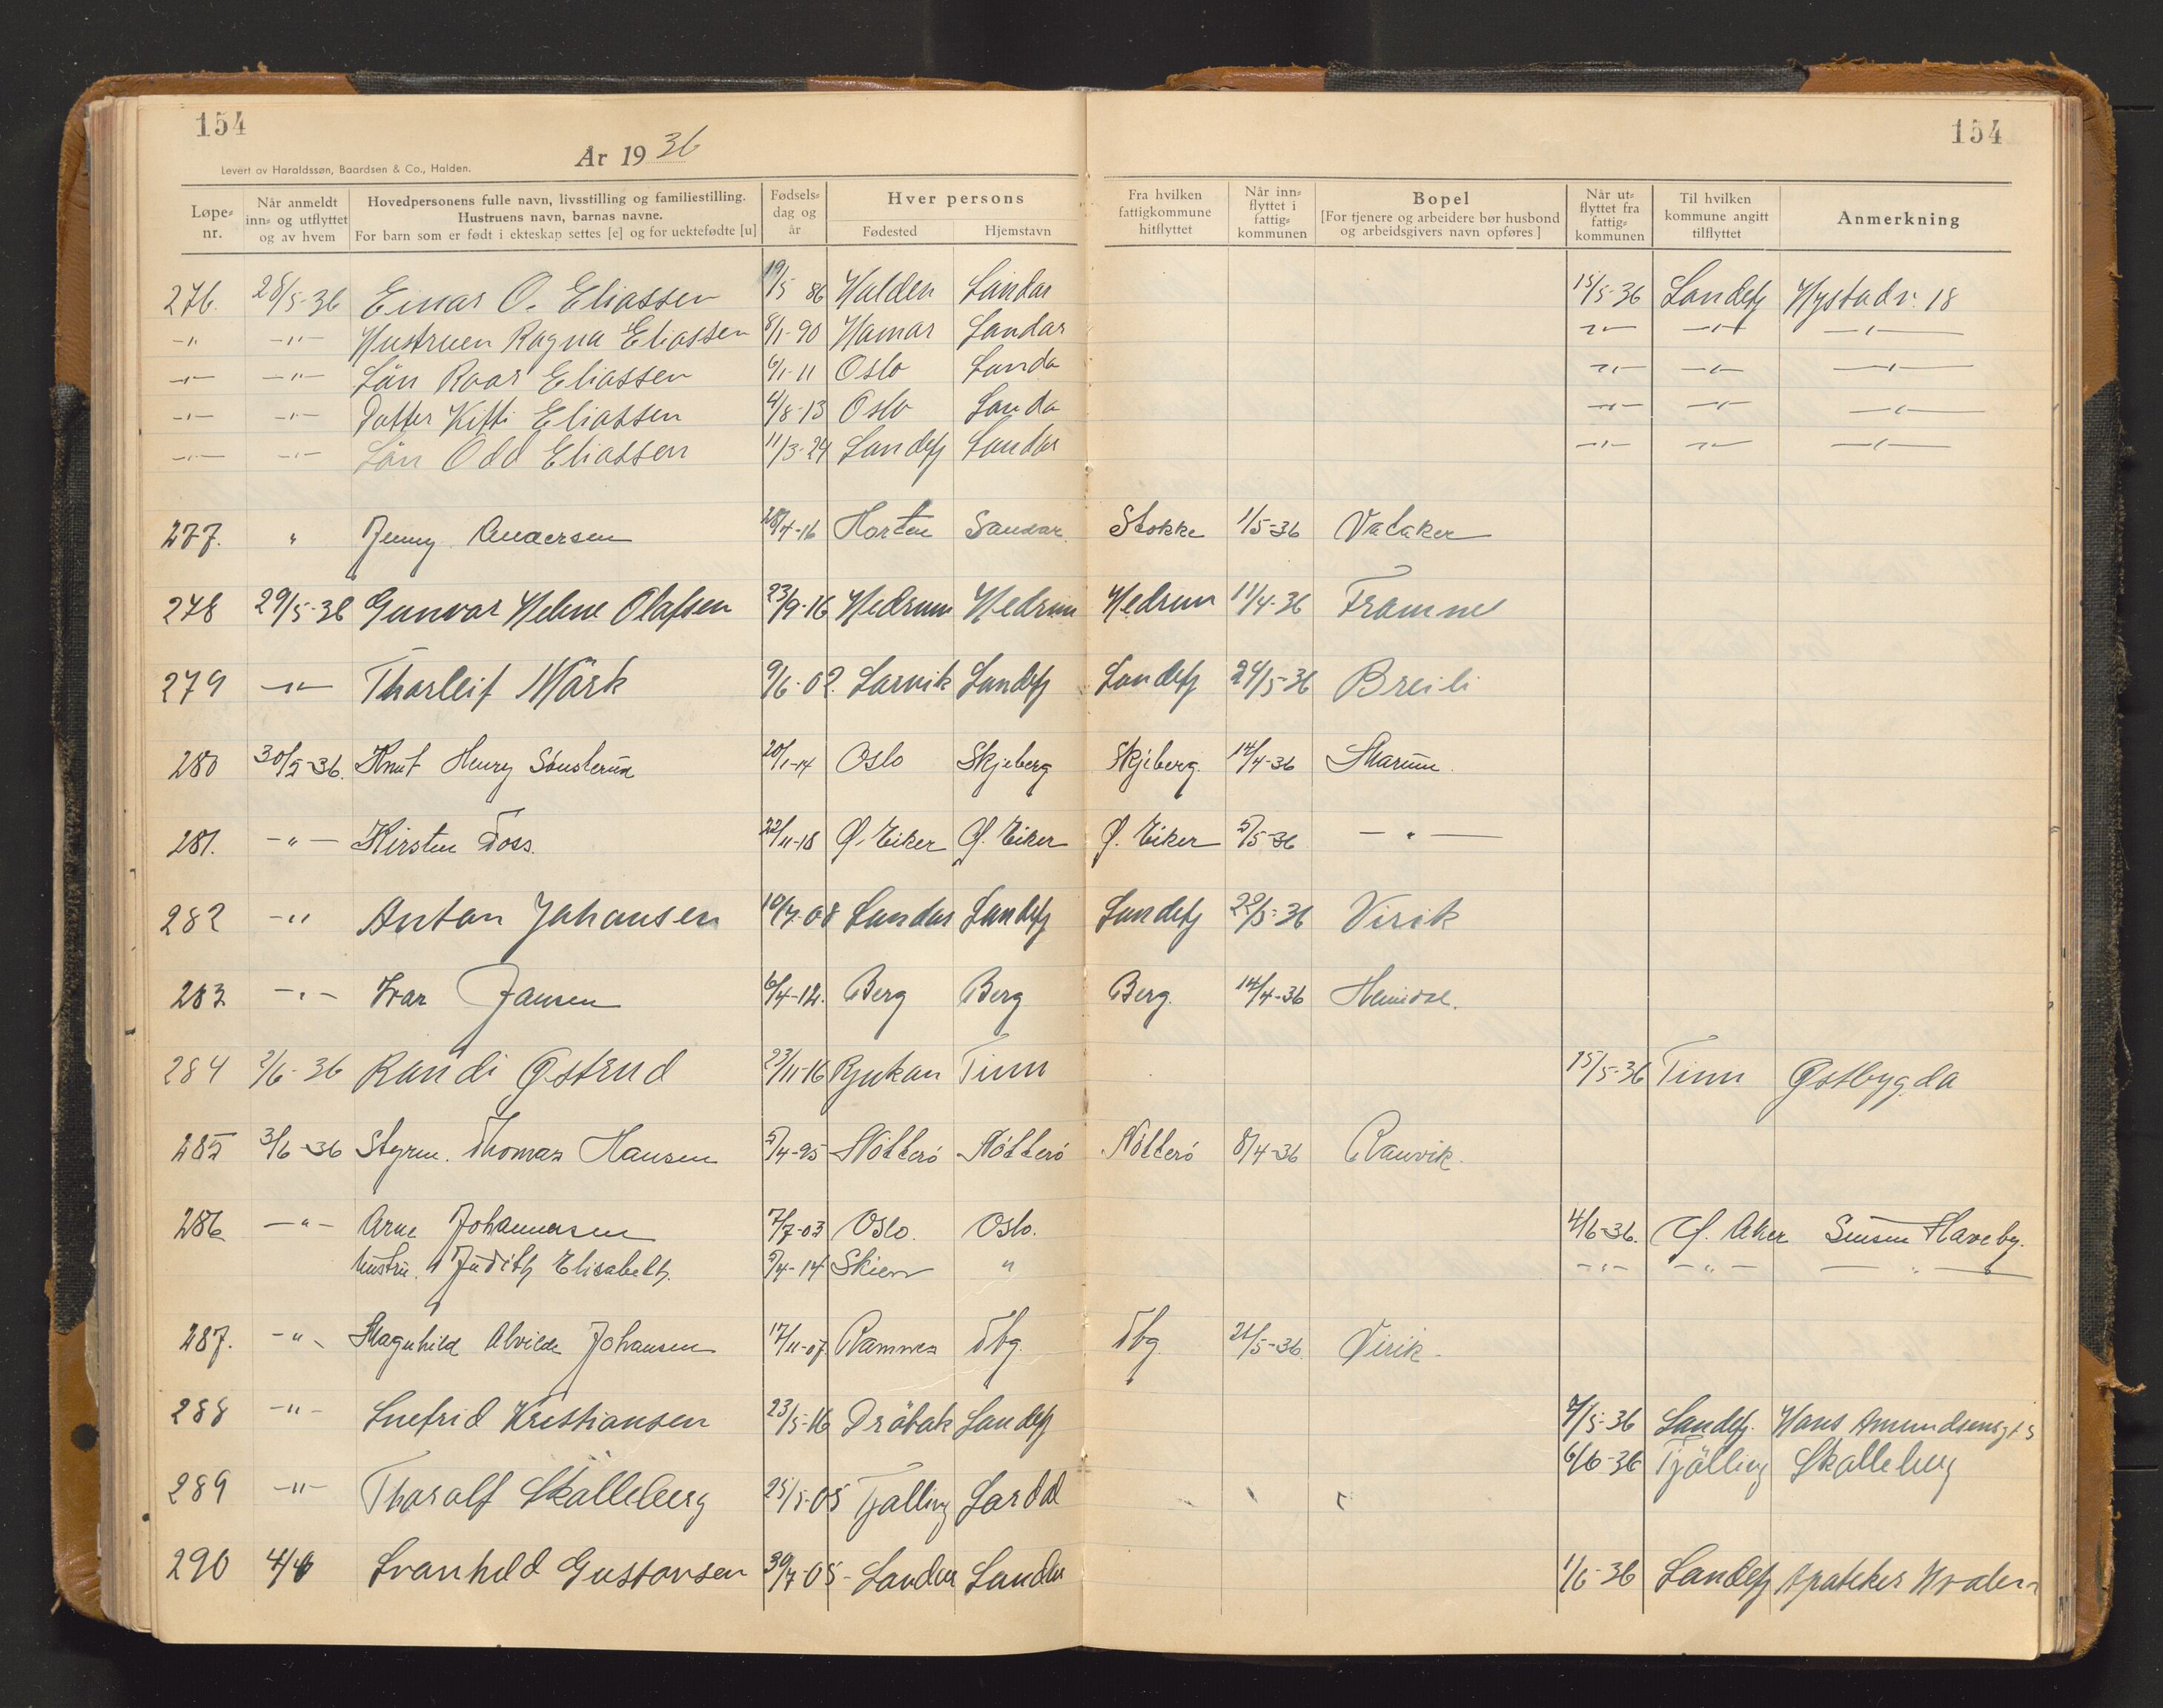 154
154
År 1936
Levert av Haraldssøn, Baardsen & Co., Halden.
Løpe-nr. Når anmeldt inn- og utflyttet og av hvem Hovedpersonens fulle navn, livsstilling og familiestilling. Hustruens navn, barnas navne. For barn som er født i ekteskap settes [e] og for uektefødte [u] Fødsels-dag og år Hver persons Fødested Hjemstavn Fra hvilken fattigkommune hitflyttet Når inn-flyttet i fattig-kommunen Bopel [For tjenere og arbeidere bør husbond og arbeidsgivers navn opføres] Når ut-flyttet fra fattig-kommunen Til hvilken kommune angitt tilflyttet Anmerkning
276. 28/5-36 Einar O. Eliassen 19/5 86 Halden Sandar 15/5-36 Sandefj Hystadv. 18
-"- -"- Hustruen Ragna Eliassen 8/1-90 Hamar Sandar -"- -"- -"-
-"- -"- Sön Roar Eliassen 6/1-11 Oslo Sanda -"- -"- -"-
-"- -"- Datter Kitti Eliassen 4/8-13 Oslo Sanda -"- -"- -"-
-"- -"- Sön Odd Eliassen 11/3-24 Sandefj Sandar -"- -"- -"-
277. " Jenny Andersen 28/4-16 Horten Sandar. Stokke 1/5-36 Vataker
278 29/5-36 Gunvor Helene Olafsen 23/9-16 Hedrum Hedrum Hedrum 11/4-36 Framnes
279 -"- Thorleif Mörk 9/6-02. Larvik Sandefj Sandefj 24/5-36 Breili
280 30/5-36. Knut Henry Sonsterud 20/1-14 Oslo Skjeberg Skjeberg. 14/4-36 Marum.
281. -"- Kirsten Foss. 22/11-18 Ø. Eiker Ø. Eiker Ø. Eiker 5/5-36 -"-
282 -" Anton Johansen 10/7-08 Sandar Sandefj Sandefj 22/5-36 Virik
283 -"- Ivar Jansen 6/4-12. Berg Berg Berg. 14/4-36 Heimdal.
284 2/6-36 Randi Østrud 23/11-16 Rjukan Tinn 15/5-36 Tinn Østbygda
285 3/6-36 Styrm. Thomas Hansen 5/4-95 Nötterö Nötterö Nötterö 8/4-36 Ranvik.
286 -"- Arne Johannesen 7/7-03 Oslo. Oslo. 4/6-36. Ø. Aker Sinsen Haveby.
hustru. Judith Elisabeth. 5/4-14 Skien " -"- -"- -"-
287. -"- Magnhild Alvilde Johansen 17/11-07 Ramnes Tbg. Tbg. 21/5-36. Virik.
288 -"- Snefrid Kristiansen 23/5-16 Dröbak Sandefj 7/5-36 Sandefj. Hans Amundsensgt 5
289 -"- Thoralf Skalleberg 25/5-05 Tjölling Sandar 6/6-36 Tjölling Skalleberg
290 4/6 Svanhild Gustavsen 30/7-05- Sandar Sandar 1/6-36 Sandefj Apoteker